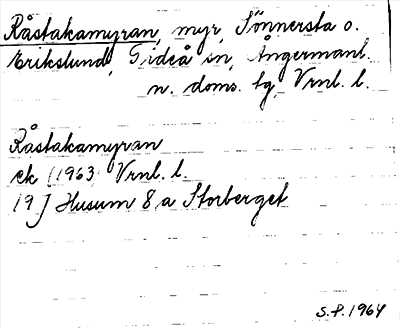 Råstakamyran, myr, Sönnersta o.
Erikslund, Gideå sn, Ångermanl.
n. doms. tg, Vrnl. l.
Råstakamyran
ek (1963) Vrnl. l.
19J Husum 8 a Storberget
S.P. 1964